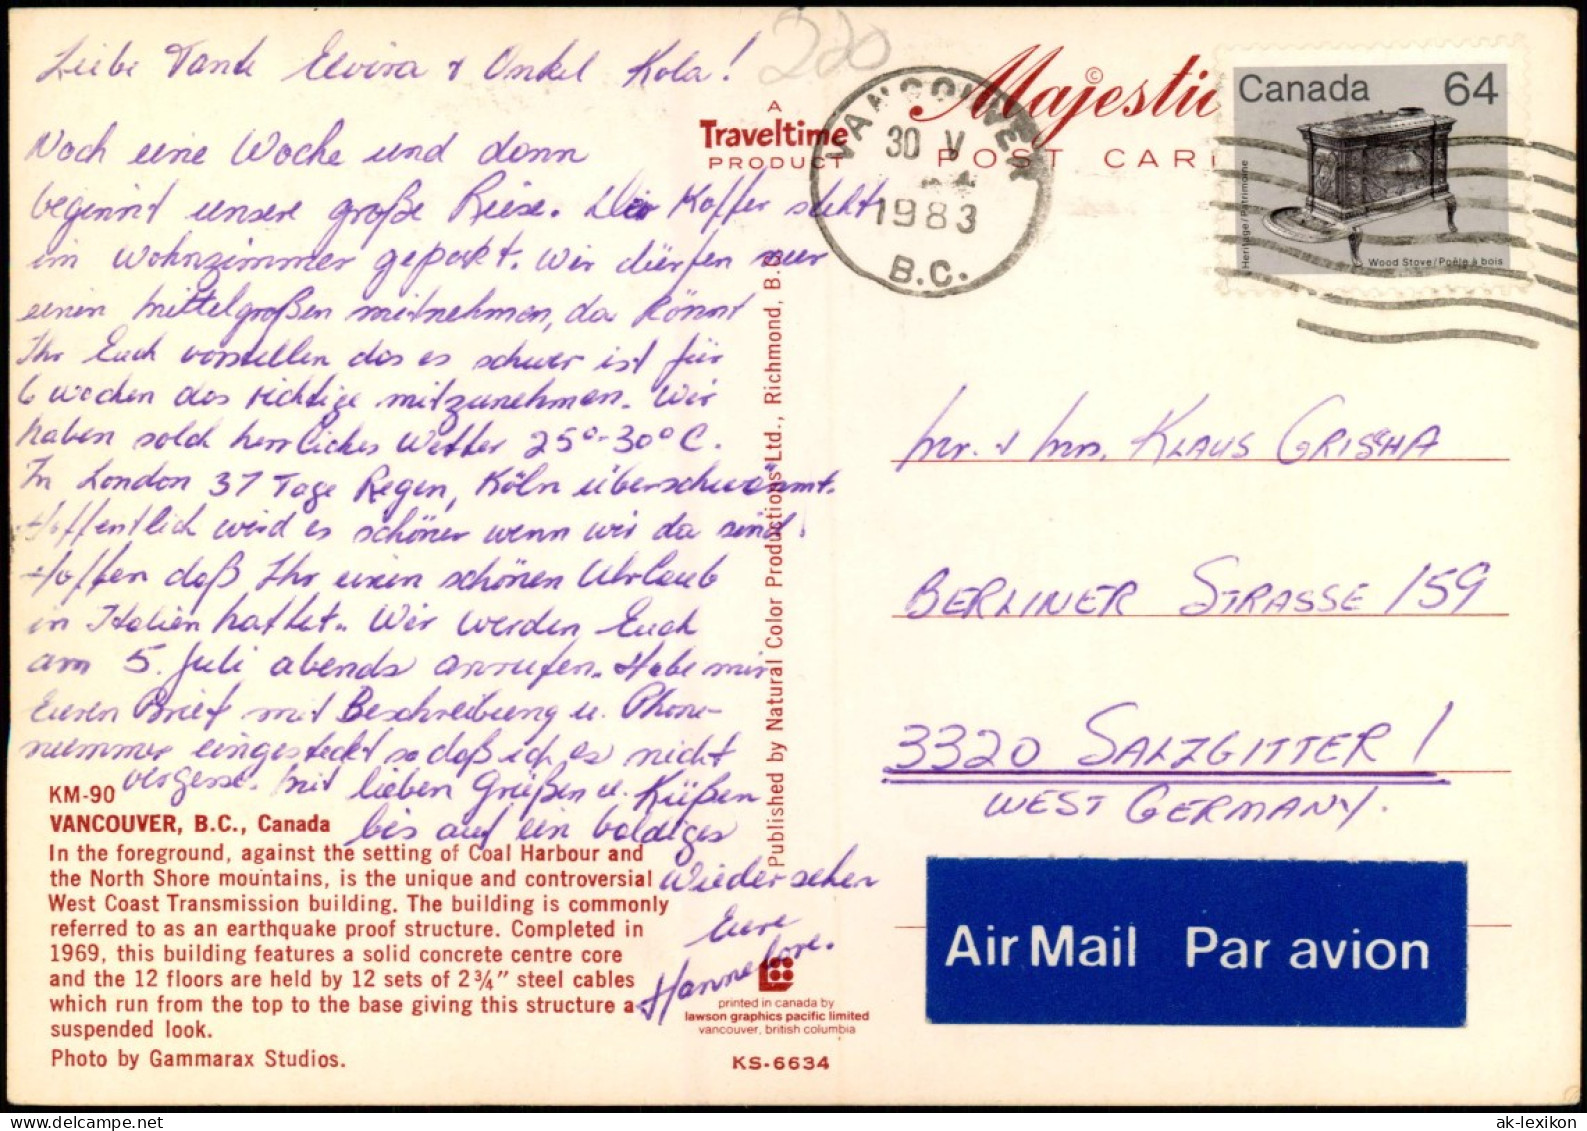 Liebe Tante Elvira + Onkel Kola!
220
Noch eine Woche und dann
beginnt unsere große Reise. Der Koffer steht
im Wohnzimmer gepackt. Wir dürfen nur
einen mittelgroßen mitnehmen, da könnt
Ihr Euch vorstellen das es schwer ist für
6 Wochen das richtige mitzunehmen. Wir
haben solch herrliches Wetter 25°-30°C.
In London 37 Tage Regen, Köln überschwemmt.
Hoffentlich wird es schöner wenn wir da sind.
Hoffen daß Ihr einen schönen Uhrlaub
in Italien hattet. Wir werden Euch
am 5. Juli abends anrufen. Habe mir
Euren Brief mit Beschreibung u. Phone-
nummer eingesteckt so daß ich es nicht
vergesse. Mit lieben Grüßen u. Küßen
bis auf ein baldiges
Wiedersehen
Eure
Hannelore.
KM-90
VANCOUVER, B.C., Canada
In the foreground, against the setting of Coal Harbour and
the North Shore mountains, is the unique and controversial
West Coast Transmission building. The building is commonly
referred to as an earthquake proof structure. Completed in
1969, this building features a solid concrete centre core
and the 12 floors are held by 12 sets of 2¾" steel cables
which run from the top to the base giving this structure a
suspended look.
Photo by Gammarax Studios.
A
Traveltime
PRODUCT
Published by Natural Color Productions Ltd., Richmond, B.C.
printed in canada by
lawson graphics pacific limited
vancouver, british columbia
KS-6634
Majestic
©
POST CARD
VANCOUVER
30 V
1983
B.C.
Canada 64
Heritage/Patrimoine
Wood Stove/Poêle à bois
Mr. + Mrs. KLAUS GRISCHA
BERLINER STRASSE 159
3320 SALZGITTER 1
WEST GERMANY.
Air Mail Par avion
ak-lexikon